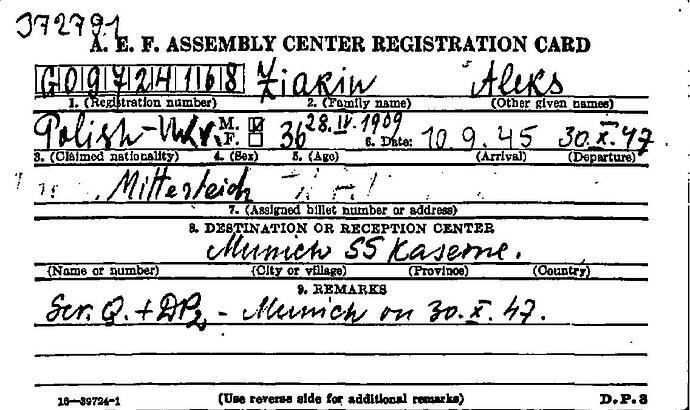 372791
A. E. F. ASSEMBLY CENTER REGISTRATION CARD
G09724168 Ziakin Aleks
1. (Registration number) 2. (Family name) (Other given names)
Polish-Ukr. M. F. 36 28.IV.1909 10.9.45 30.X.47
3. (Claimed nationality) 4. (Sex) 5. (Age) 6. Date: (Arrival) (Departure)
Mitterteich
7. (Assigned billet number or address)
8. DESTINATION OR RECEPTION CENTER
Munich SS Kaserne.
(Name or number) (City or village) (Province) (Country)
9. REMARKS
Scr. Q. + DP2 - Munich on 30.X.47.
16—39724-1 (Use reverse side for additional remarks) D.P.3